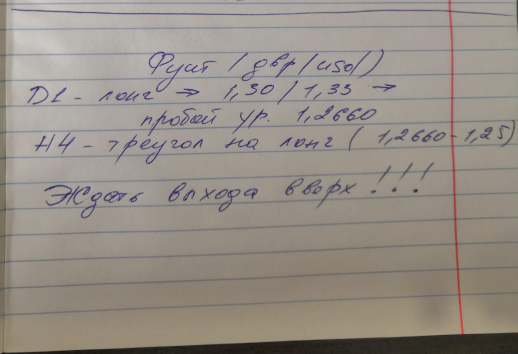 Фунт / gbp/usd)
D1 - лонг → 1,30 / 1,35 →
пробой ур. 1,2660
H4 - треугол на лонг ( 1,2660 - 1,25)
Ждать выхода вверх !!!